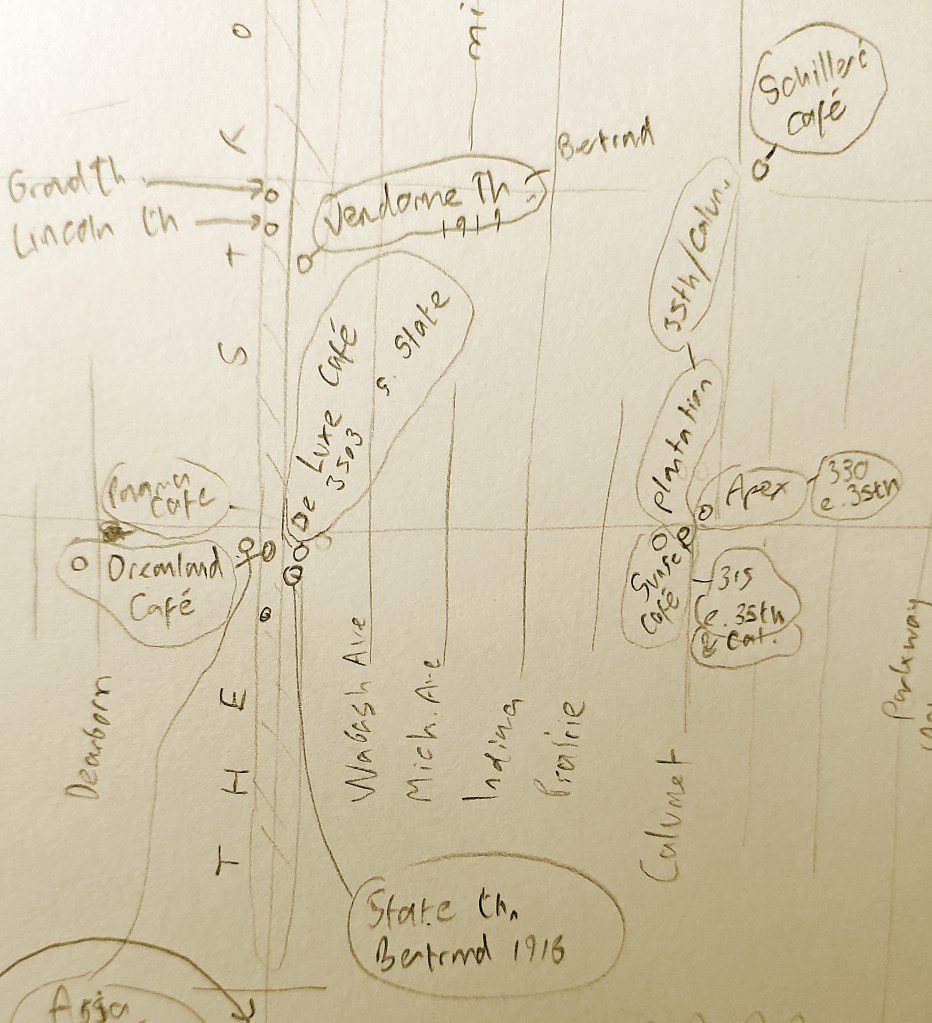 mi
Schillers
café
Bertrand
Grand th
Lincoln th
Vendome Th
1919
35th/Calum.
De Luxe Café
3503
S. State
Plantation
Panama
Café
Apex
330
e. 35th
Dreamland
Café
Sunset
café
315
e. 35th
& Cal.
THE STRO
Dearborn
Wabash Ave
Mich. Ave
Indiana
Prairie
Calumet
Parkway
State th.
Bertrand 1916